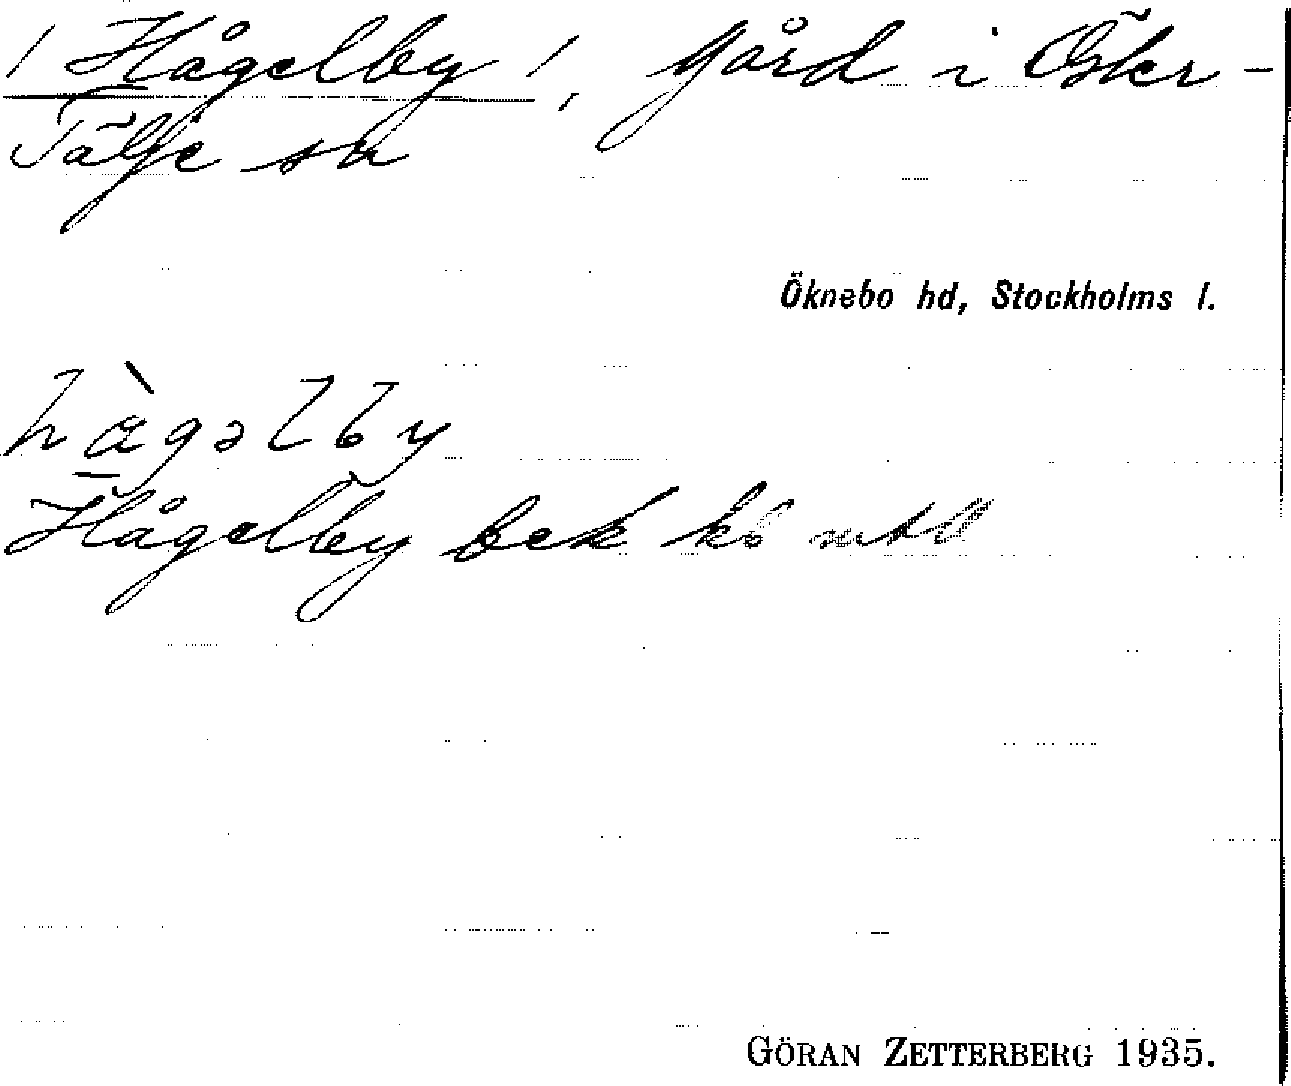 / Hågelby /, gård i Öster-
Tälje sn
Öknebo hd, Stockholms l.
hàgəlby
Hågelby bek kb
GÖRAN ZETTERBERG 1935.